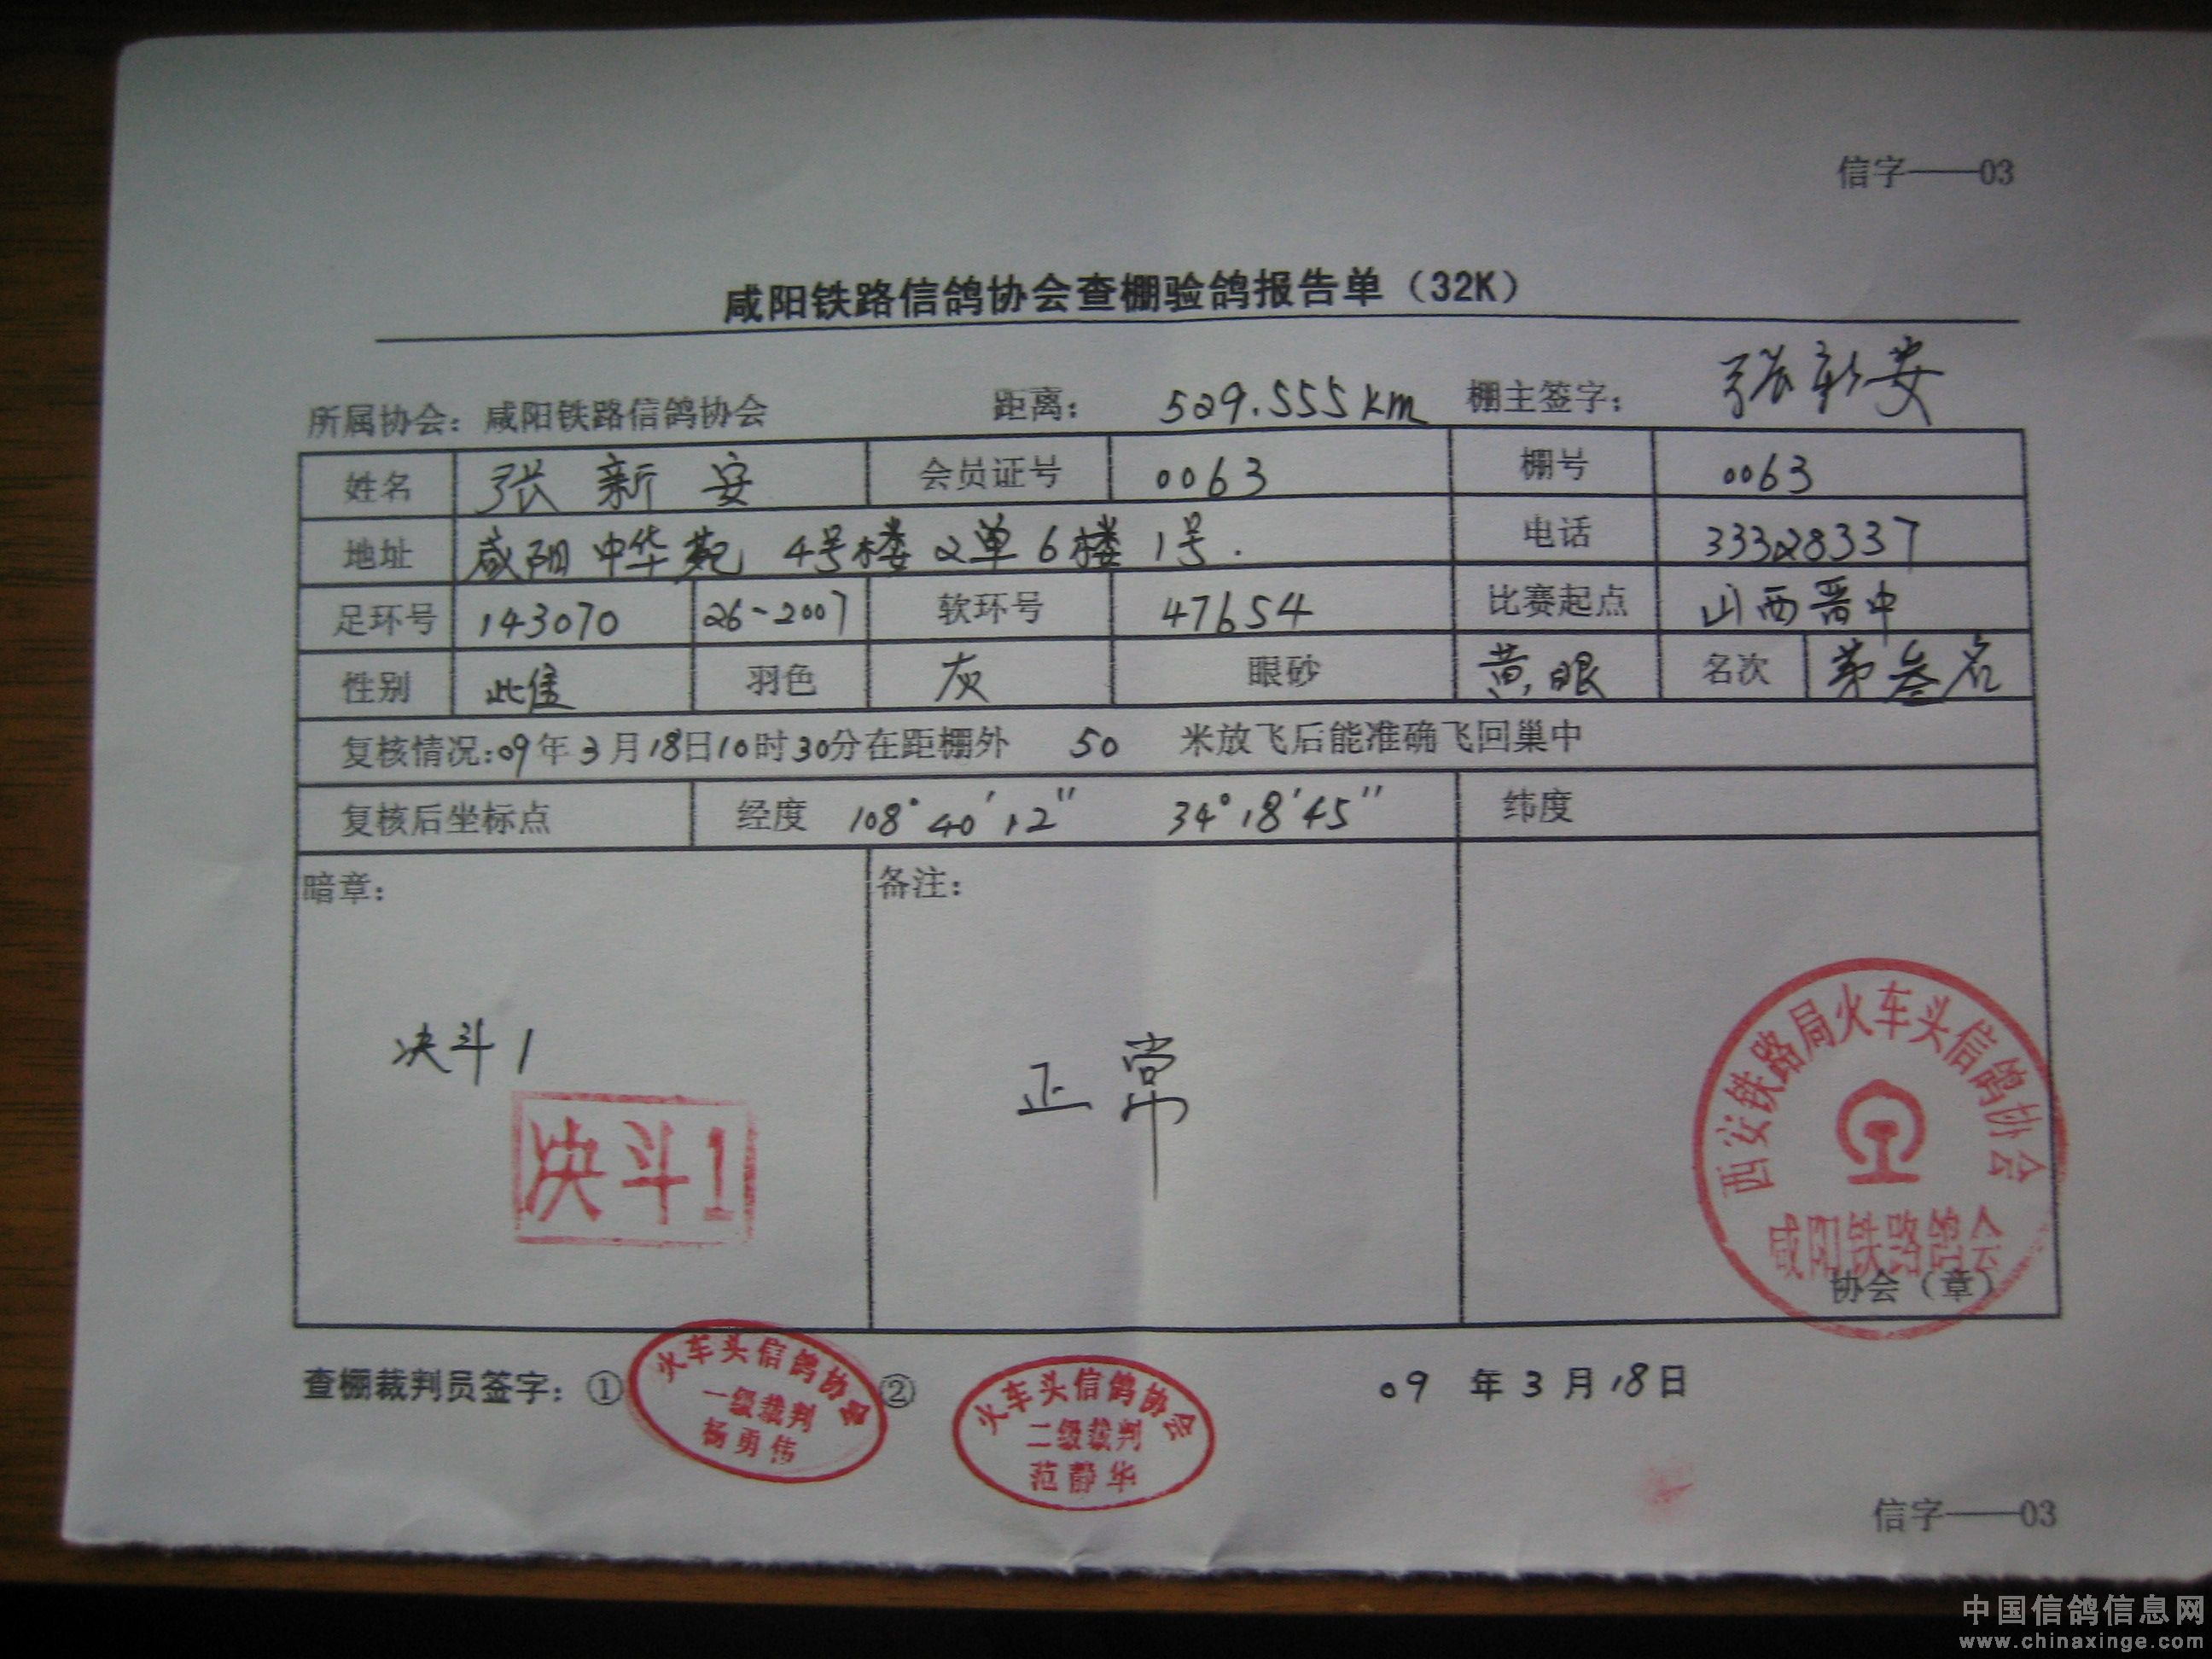 信字——03
咸阳铁路信鸽协会查棚验鸽报告单（32K）
所属协会：咸阳铁路信鸽协会 距离： 529.555km 棚主签字： 张新安
姓名 张新安 会员证号 0063 棚号 0063
地址 咸阳中华苑 4号楼2单6楼1号. 电话 33328337
足环号 143070 26-2007 软环号 47654 比赛起点 山西晋中
性别 雌 羽色 灰 眼砂 黄眼 名次 第叁名
复核情况:09年3月18日10时30分在距棚外 50 米放飞后能准确飞回巢中
复核后坐标点 经度 108°40′12″ 34°18′45″ 纬度
暗章： 备注：
决斗1
决斗1
正常
西安铁路局火车头信鸽协会
咸阳铁路鸽会
协会（章）
查棚裁判员签字：① ② 09 年 3 月 18日
火车头信鸽协会
一级裁判
杨勇伟
火车头信鸽协会
二级裁判
范静华
信字——03
中国信鸽信息网
www.chinaxinge.com